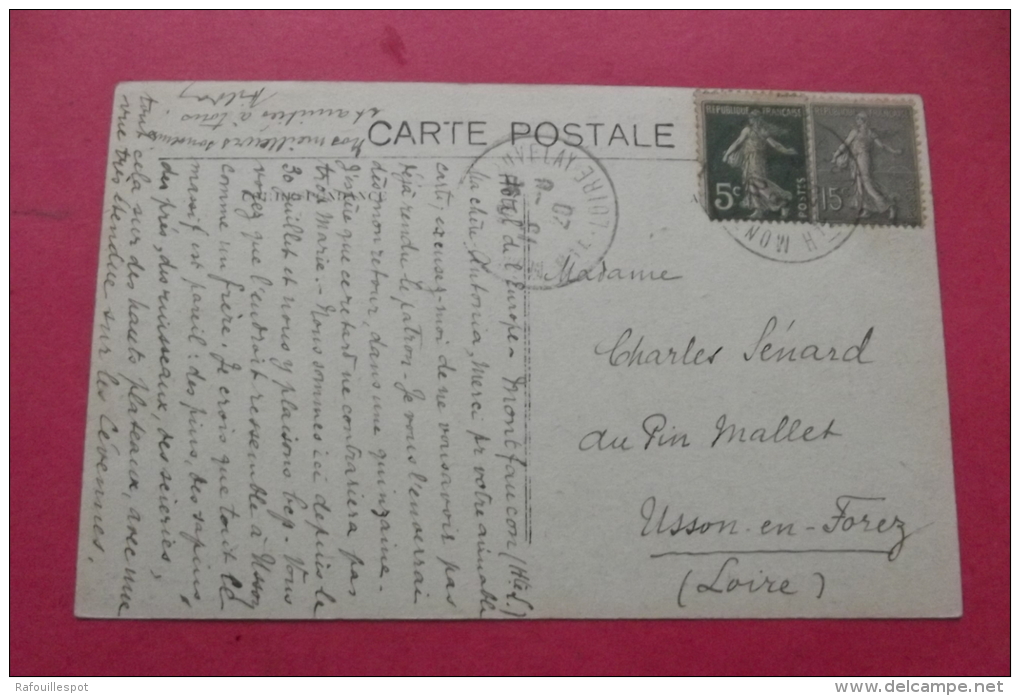 CARTE POSTALE
REPUBLIQUE FRANÇAISE
5c
POSTES
REPUBLIQUE FRANÇAISE
15
VELAY
LOIRE
Madame
Charles Sénard
au Pin Mallet
Usson-en-Forez
(Loire)
Hôtel de l'Europe - Montfaucon (Hte L.)
Ma chère Antonia, Merci pr votre aimable
carte, excusez-moi de ne vous avoir pas
déjà rendu le patron. Je vous l'enverrai
dès mon retour, dans une quinzaine.
J'espère que ce retard ne contrariera pas
trop Marie. - Nous sommes ici depuis le
30 Juillet et nous y plaisons bcp. - Vous
voyez que l'endroit ressemble à Usson
comme un frère. Je crois que tout le
massif est pareil : des pins, des sapins,
des prés, des ruisseaux, des scieries,
tout cela sur des hauts plateaux, avec une
vue très étendue sur les Cévennes.
Nos meilleurs souvenirs
et amitiés à tous.
Rafouillespot
www.delcampe.net